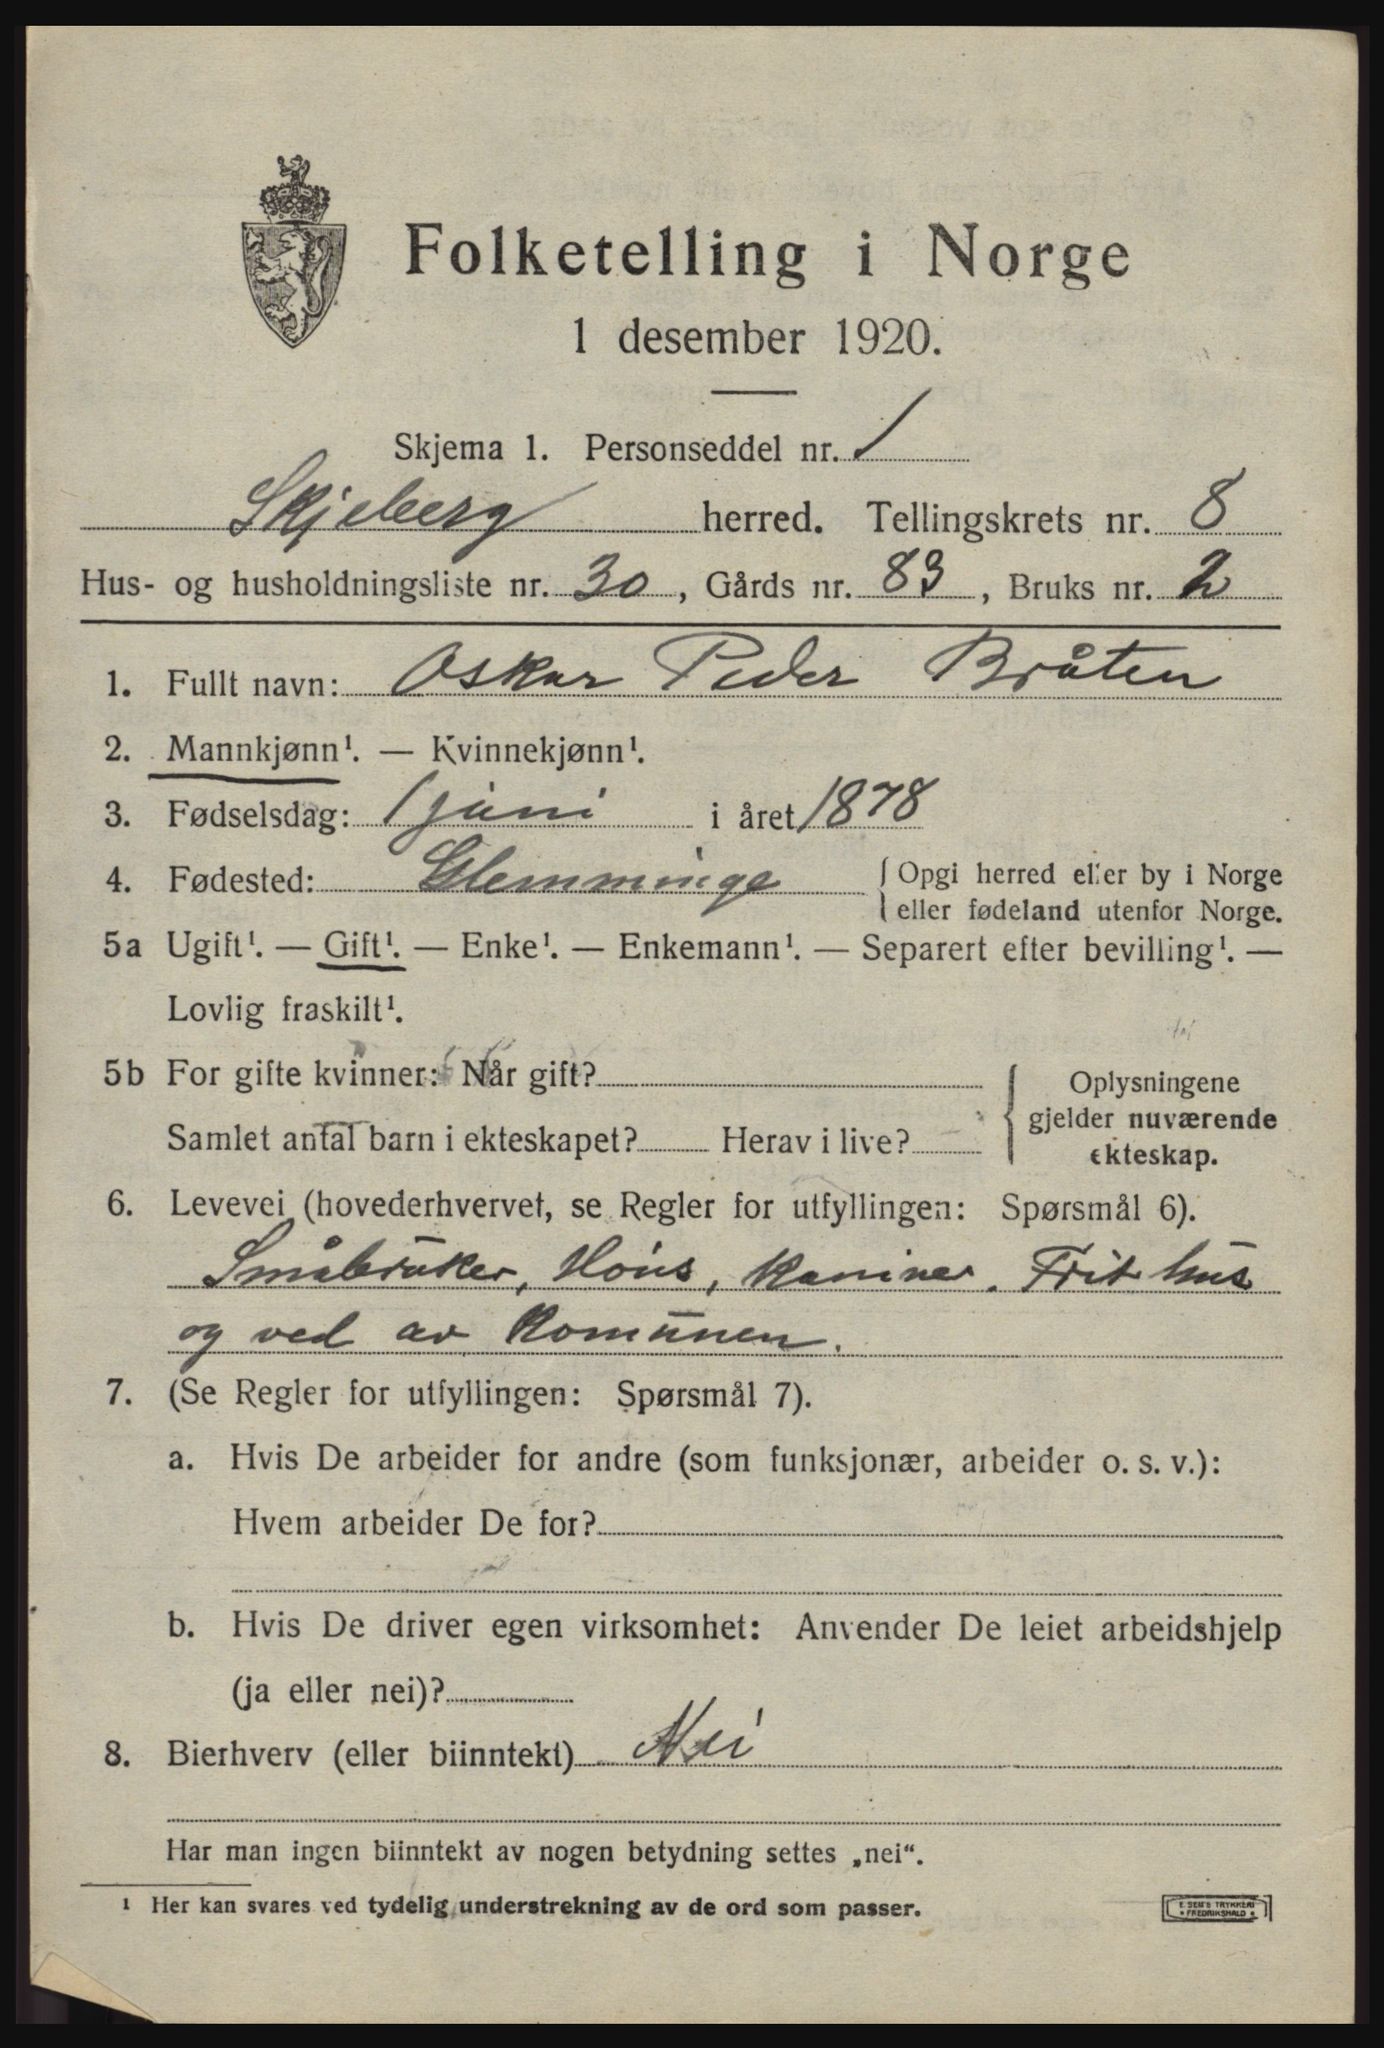 Folketelling i Norge
1 desember 1920.
Skjema 1. Personseddel nr. 1
Skjeberg herred. Tellingskrets nr. 8
Hus- og husholdningsliste nr. 30, Gårds nr. 83, Bruks nr. 2
1. Fullt navn: Oskar Peder Bråten
2. Mannkjønn¹. — Kvinnekjønn¹.
3. Fødselsdag: 1 juni i året 1878
4. Fødested: Glemminge { Opgi herred eller by i Norge
eller fødeland utenfor Norge.
5a Ugift¹. — Gift¹. — Enke¹. — Enkemann¹. — Separert efter bevilling¹. —
Lovlig fraskilt¹.
5b For gifte kvinner: Når gift? { Oplysningene
gjelder nuværende
Samlet antal barn i ekteskapet? Herav i live?
ekteskap.
6. Levevei (hovederhvervet, se Regler for utfyllingen: Spørsmål 6).
Småbruker, Höns, kaniner. Frit hus
og ved av komunen.
7. (Se Regler for utfyllingen: Spørsmål 7).
a. Hvis De arbeider for andre (som funksjonær, arbeider o. s. v.):
Hvem arbeider De for?
b. Hvis De driver egen virksomhet: Anvender De leiet arbeidshjelp
(ja eller nei)?
8. Bierhverv (eller biinntekt) Nei
Har man ingen biinntekt av nogen betydning settes „nei“.
¹ Her kan svares ved tydelig understrekning av de ord som passer.
E. SEM'S TRYKKERI
• FREDRIKSHALD •